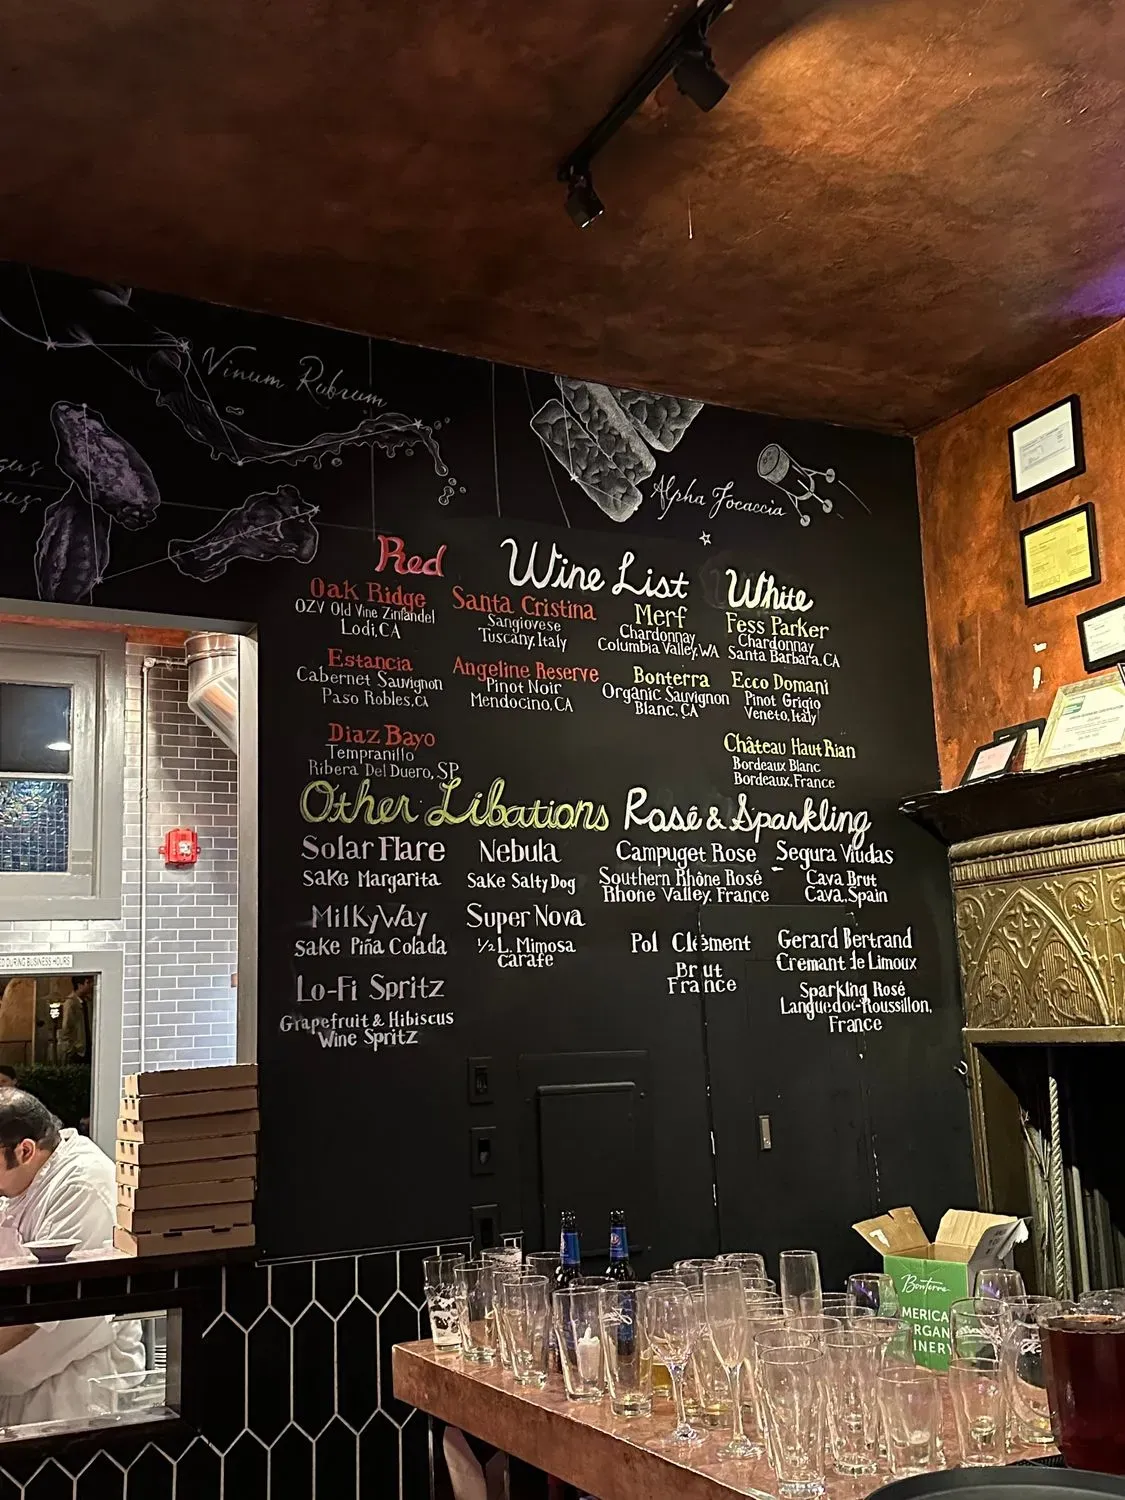 Vinum Rubrum
Alpha Focaccia
Wine List
Red
Oak Ridge
OZV Old Vine Zinfandel
Lodi, CA
Santa Cristina
Sangiovese
Tuscany, Italy
Estancia
Cabernet Sauvignon
Paso Robles, CA
Angeline Reserve
Pinot Noir
Mendocino, CA
Diaz Bayo
Tempranillo
Ribera Del Duero, SP
White
Merf
Chardonnay
Columbia Valley, WA
Fess Parker
Chardonnay
Santa Barbara, CA
Bonterra
Organic Sauvignon
Blanc, CA
Ecco Domani
Pinot Grigio
Veneto, Italy
Château Haut Rian
Bordeaux Blanc
Bordeaux, France
Other Libations
Solar Flare
Sake Margarita
Nebula
Sake Salty Dog
Milky Way
Sake Piña Colada
Super Nova
½ L. Mimosa
Carafe
Lo-Fi Spritz
Grapefruit & Hibiscus
Wine Spritz
Rosé & Sparkling
Campuget Rose
Southern Rhône Rosé
Rhone Valley, France
Segura Viudas
Cava Brut
Cava, Spain
Pol Clement
Brut
France
Gerard Bertrand
Cremant de Limoux
Sparking Rosé
Languedoc-Roussillon,
France
DURING BUSINESS HOURS
Bonterra